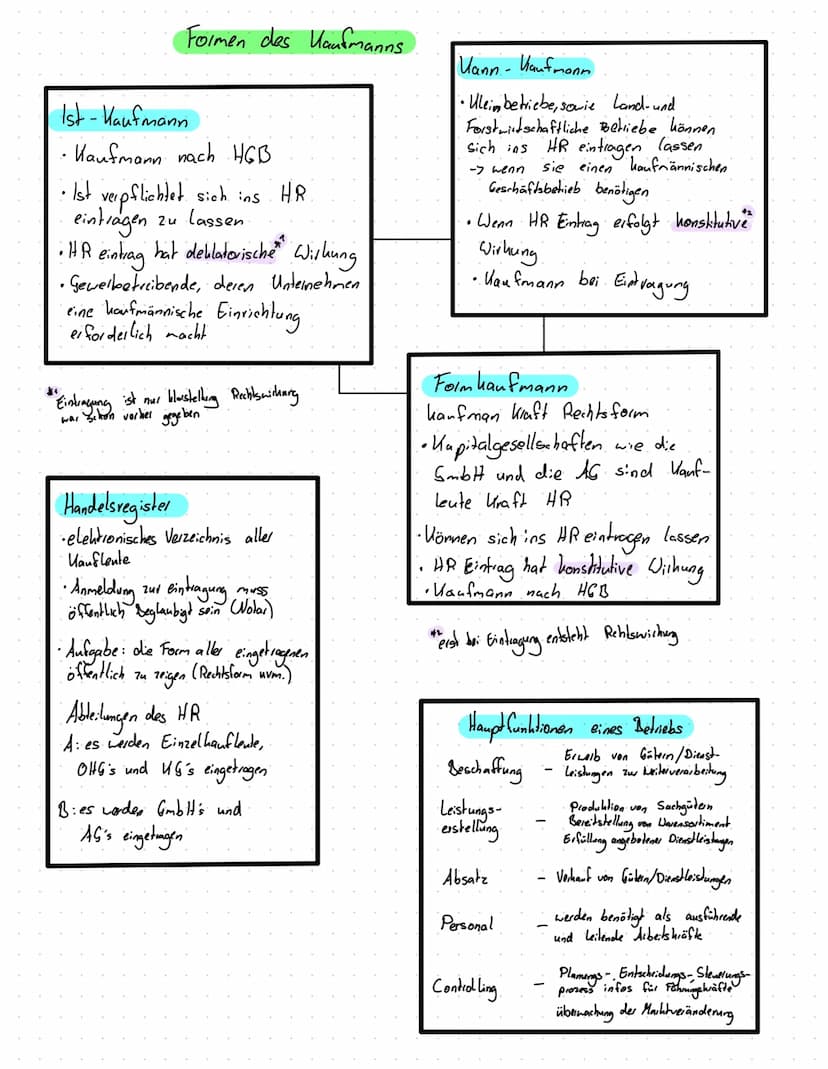 Formen des Kaufmanns
Ist-Kaufmann
• Kaufmann nach HGB
• Ist verpflichtet sich ins HR
eintragen zu lassen
• HR eintrag hat deklatorische*1 Wirkung
• Gewerbetreibende, deren Unternehmen
eine kaufmännische Einrichtung
erforderlich macht
*1 Eintragung ist nur klarstellung Rechtswirkung
war schon vorher gegeben
Kann-Kaufmann
• Kleinbetriebe, sowie Land- und
Forstwirtschaftliche Betriebe können
sich ins HR eintragen lassen
-> wenn sie einen kaufmännischen
Geschäftsbetrieb benötigen
• Wenn HR Eintrag erfolgt konstitutive*2
Wirkung
• Kaufmann bei Eintragung
Formkaufmann
kaufman Kraft Rechtsform
• Kapitalgesellschaften wie die
GmbH und die AG sind Kauf-
leute Kraft HR
• Können sich ins HR eintragen lassen
• HR Eintrag hat konstitutive Wirkung
• Kaufmann nach HGB
*2 erst bei Eintragung entsteht Rehtswirkung
Handelsregister
• elektronisches Verzeichnis aller
Kaufleute
• Anmeldung zur eintragung muss
öffentlich Beglaubigt sein (Notar)
• Aufgabe: die Form aller eingetragenen
öffentlich zu zeigen (Rechtsform uvm.)
Abteilungen des HR
A: es werden Einzelkaufleute,
OHG's und KG's eingetragen
B: es werden GmbH's und
AG's eingetragen
Hauptfunktionen eines Betriebs
Beschaffung - Erwerb von Gütern/Dienst-
leistungen zur Weiterverarbeitung
Leistungs-
erstellung - Produktion von Sachgütern
Bereitstellung von Warensortiment
Erfüllung angebotener Dienstleistungen
Absatz - Verkauf von Gütern/Dienstleistungen
Personal - werden benötigt als ausführende
und leitende Arbeitskräfte
Controlling - Planungs-, Entscheidungs-, Steuerungs-
prozess infos für Führungskräfte
überwachung der Marktveränderung